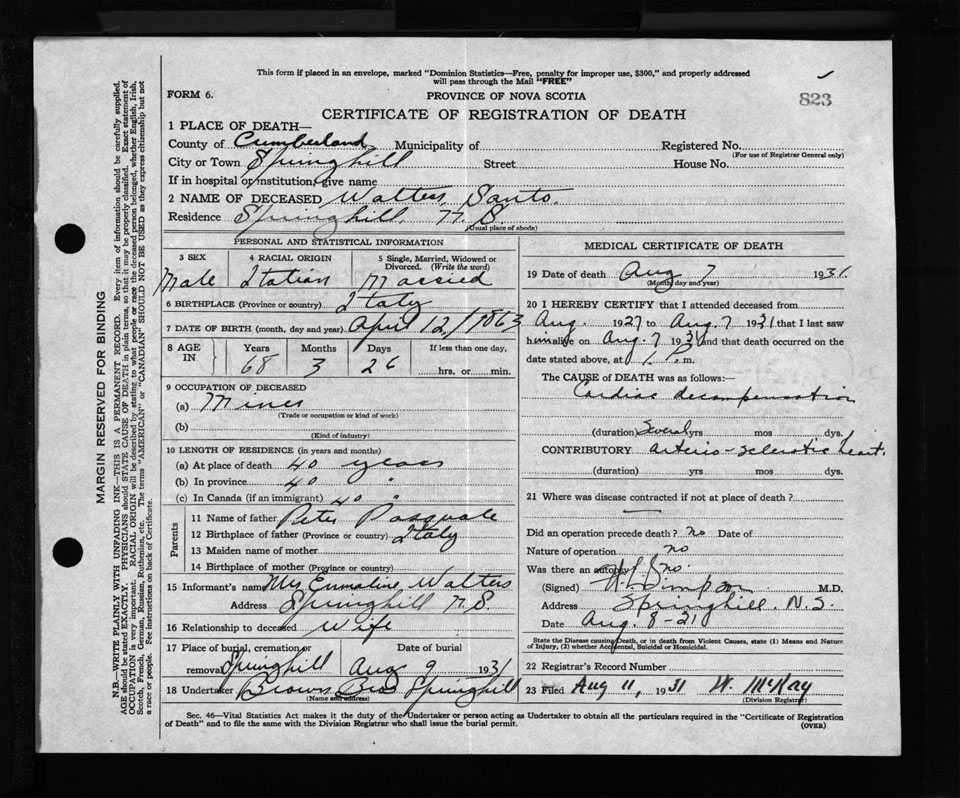 This form if placed in an envelope, marked "Dominion Statistics—Free, penalty for improper use, $300," and properly addressed
will pass through the Mail "FREE"
FORM 6.
PROVINCE OF NOVA SCOTIA
823
CERTIFICATE OF REGISTRATION OF DEATH
1 PLACE OF DEATH—
County of Cumberland Municipality of Registered No.
(For use of Registrar General only)
City or Town Springhill Street House No.
If in hospital or institution, give name
2 NAME OF DECEASED Walters, Santo.
Residence Springhill, N. S.
(Usual place of abode)
PERSONAL AND STATISTICAL INFORMATION
3 SEX 4 RACIAL ORIGIN 5 Single, Married, Widowed or
Divorced. (Write the word)
Male Italian Married
6 BIRTHPLACE (Province or country) Italy
7 DATE OF BIRTH (month, day and year) April 12, 1863
8 AGE IN Years Months Days If less than one day,
68 3 26 hrs. or min.
9 OCCUPATION OF DECEASED
(a) Miner
(Trade or occupation or kind of work)
(b)
(Kind of industry)
10 LENGTH OF RESIDENCE (in years and months)
(a) At place of death 40 years
(b) In province 40 "
(c) In Canada (if an immigrant) 40 "
Parents
11 Name of father Peter Pasquale
12 Birthplace of father (Province or country) Italy
13 Maiden name of mother
14 Birthplace of mother (Province or country)
15 Informant's name Mrs Emmaline Walters
Address Springhill N. S.
16 Relationship to deceased Wife
17 Place of burial, cremation or Date of burial
removal Springhill Aug 9 1931
18 Undertaker Brown Bros Springhill
(Name and address)
MEDICAL CERTIFICATE OF DEATH
19 Date of death Aug 7 1931.
(Month, day and year)
20 I HEREBY CERTIFY that I attended deceased from
Aug. 1927 to Aug 7 1931 that I last saw
him alive on Aug. 7 1931 and that death occurred on the
date stated above, at 1 P. m.
The CAUSE of DEATH was as follows:—
Cardiac decompensation
(duration) Several yrs mos dys.
CONTRIBUTORY arterio-sclerotic heart.
(duration) yrs mos dys.
21 Where was disease contracted if not at place of death?
Did an operation precede death? no Date of
Nature of operation no
Was there an autopsy? no.
(Signed) Simpson M.D.
Address Springhill. N.S.
Date Aug. 8-21
State the Disease causing Death, or in death from Violent Causes, state (1) Means and Nature
of Injury, (2) whether Accidental, Suicidal or Homicidal.
22 Registrar's Record Number
23 Filed Aug 11, 1931 W. McKay
(Division Registrar)
Sec. 46—Vital Statistics Act makes it the duty of the Undertaker or person acting as Undertaker to obtain all the particulars required in the "Certificate of Registration
of Death" and to file the same with the Division Registrar who shall issue the burial permit.
(OVER)
MARGIN RESERVED FOR BINDING
N.B.—WRITE PLAINLY WITH UNFADING INK—THIS IS A PERMANENT RECORD. Every item of information should be carefully supplied.
AGE should be stated EXACTLY. PHYSICIANS should STATE CAUSE OF DEATH in plain terms, so that it may be properly classified. Exact statement of
OCCUPATION is very important. RACIAL ORIGIN will be described by stating to what people or race the deceased person belonged, whether English, Irish,
Scotch, French, German, Russian, Ruthenian, etc. The terms "AMERICAN" or "CANADIAN" SHOULD NOT BE USED as they express citizenship but not
a race or people. See instructions on back of Certificate.